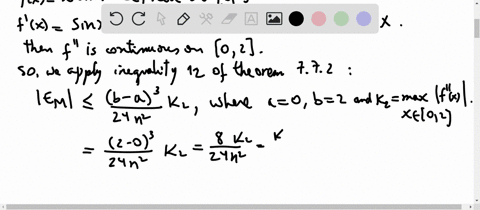 f'(x) = Sin x.
then f" is continuous on [0,2].
So, we apply inequality 12 of theorem 7.7.2 :
|E_M| ≤ (b-a)^3/24n^2 K_2, where a=0, b=2 and K_2 = max_{x∈[0,2]} |f"(x)|.
= (2-0)^3/24n^2 K_2 = 8 K_2/24n^2 = K